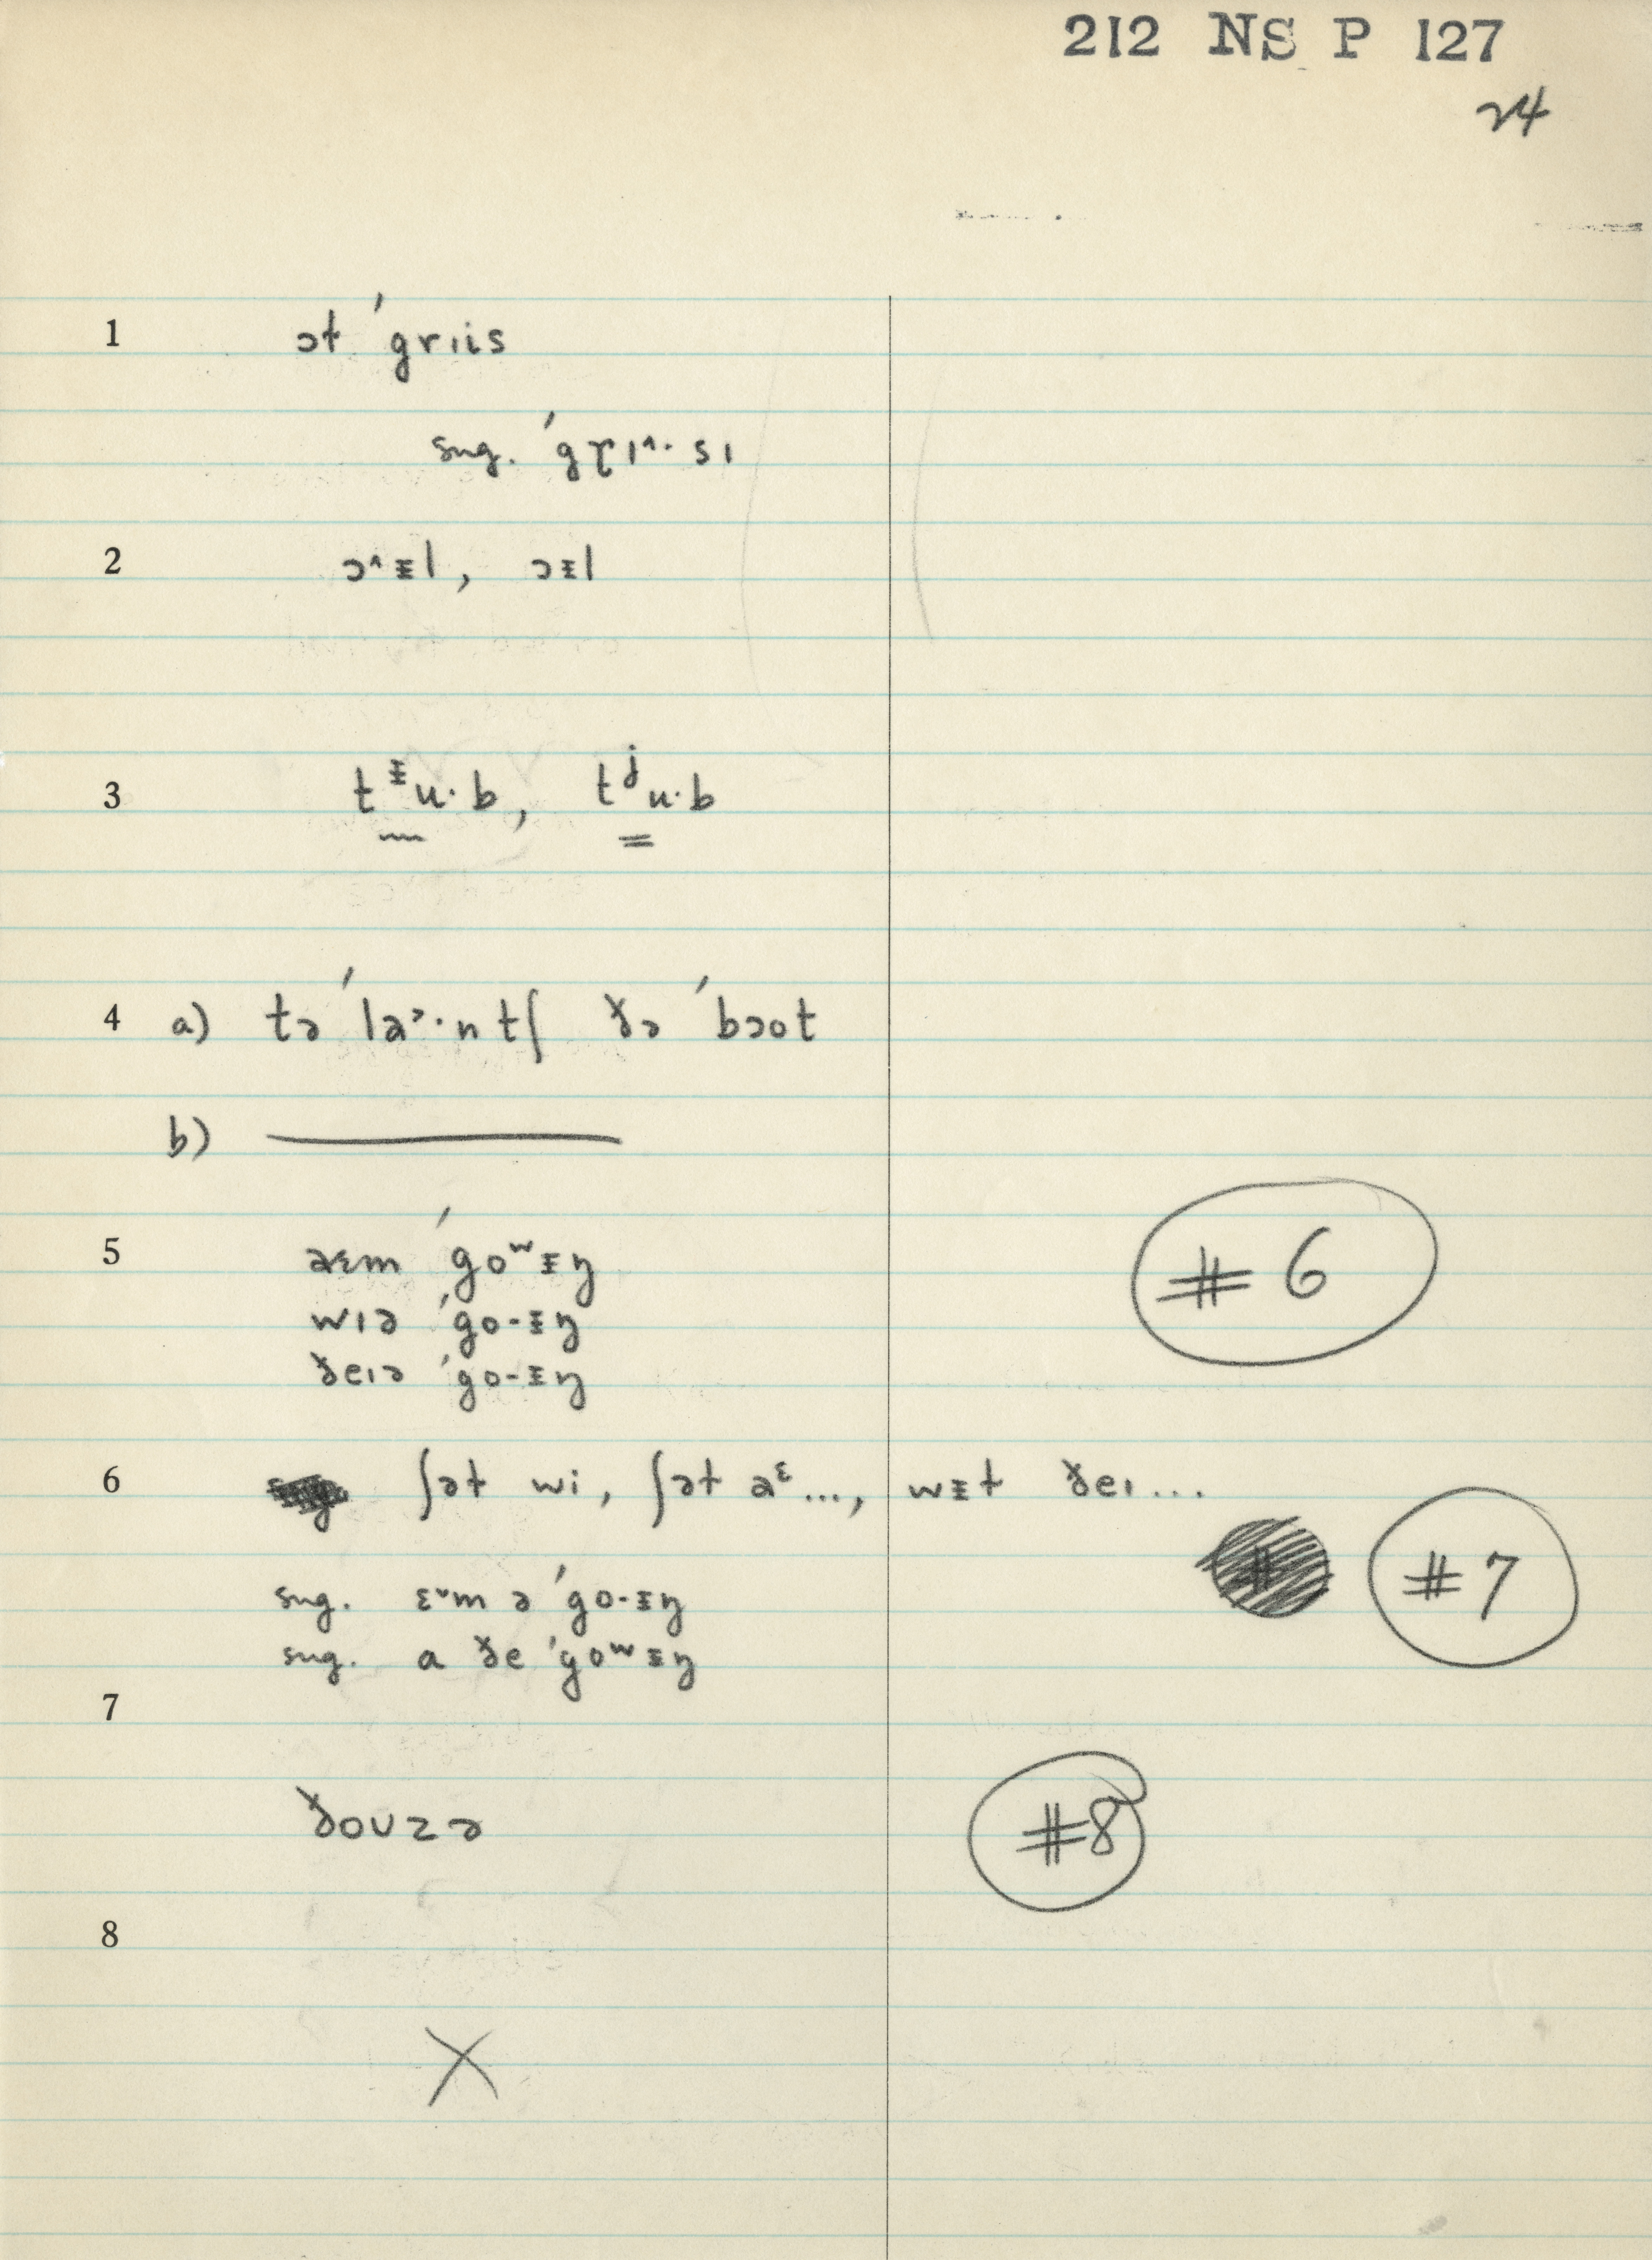 212 NS P 127
24
1 ət ˈgrɪis
sug. ˈgɽɪ^· sɪ
2 ɔ^ᵻl, ɔᵻl
3 tᵻu·b, tʲu·b
4 a) tə ˈla˃·ntʃ ðə ˈbɔot
b)
5 aɛm ˈgoʷᵻŋ
wɪə ˈgo-ᵻŋ
ðeɪə ˈgo-ᵻŋ
#6
6 ʃət wi, ʃət aᵋ..., wᵻt ðeɪ...
#7
sug. ɛ˅m ə ˈgo-ᵻŋ
sug. a ðe ˈgoʷᵻŋ
7
ðoʊzə
#8
8
X